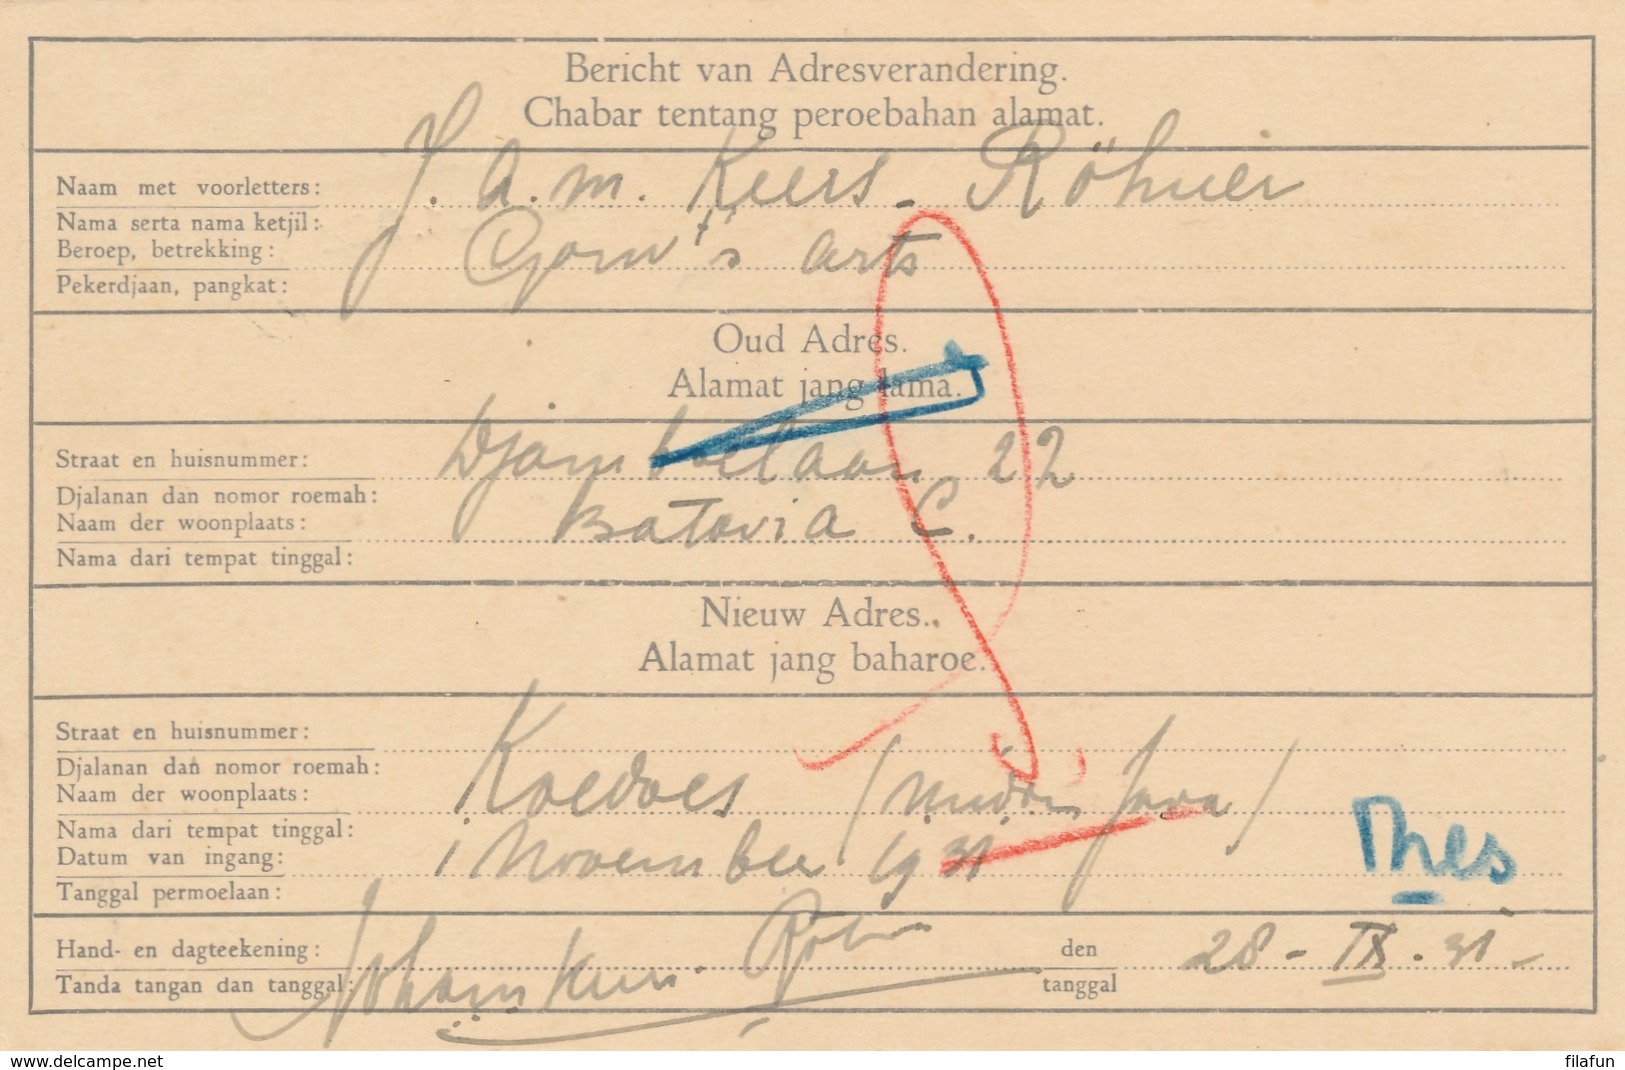 Bericht van Adresverandering.
Chabar tentang peroebahan alamat.
Naam met voorletters:
J. A. M. Keers - Röhner
Nama serta nama ketjil:
Beroep, betrekking:
Gouvt's arts
Pekerdjaan, pangkat:
Oud Adres.
Alamat jang lama.
Straat en huisnummer:
Djamboelaan 22
Djalanan dan nomor roemah:
Naam der woonplaats:
Batavia C.
Nama dari tempat tinggal:
Nieuw Adres.
Alamat jang baharoe.
Straat en huisnummer:
Djalanan dan nomor roemah:
Naam der woonplaats:
Koedoes (Midden Java)
Nama dari tempat tinggal:
Datum van ingang:
1 November 1931
Tanggal permoelaan:
Hand- en dagteekening:
den
28 - IX - 31 -
Tanda tangan dan tanggal:
tanggal
www.delcampe.net
filafun